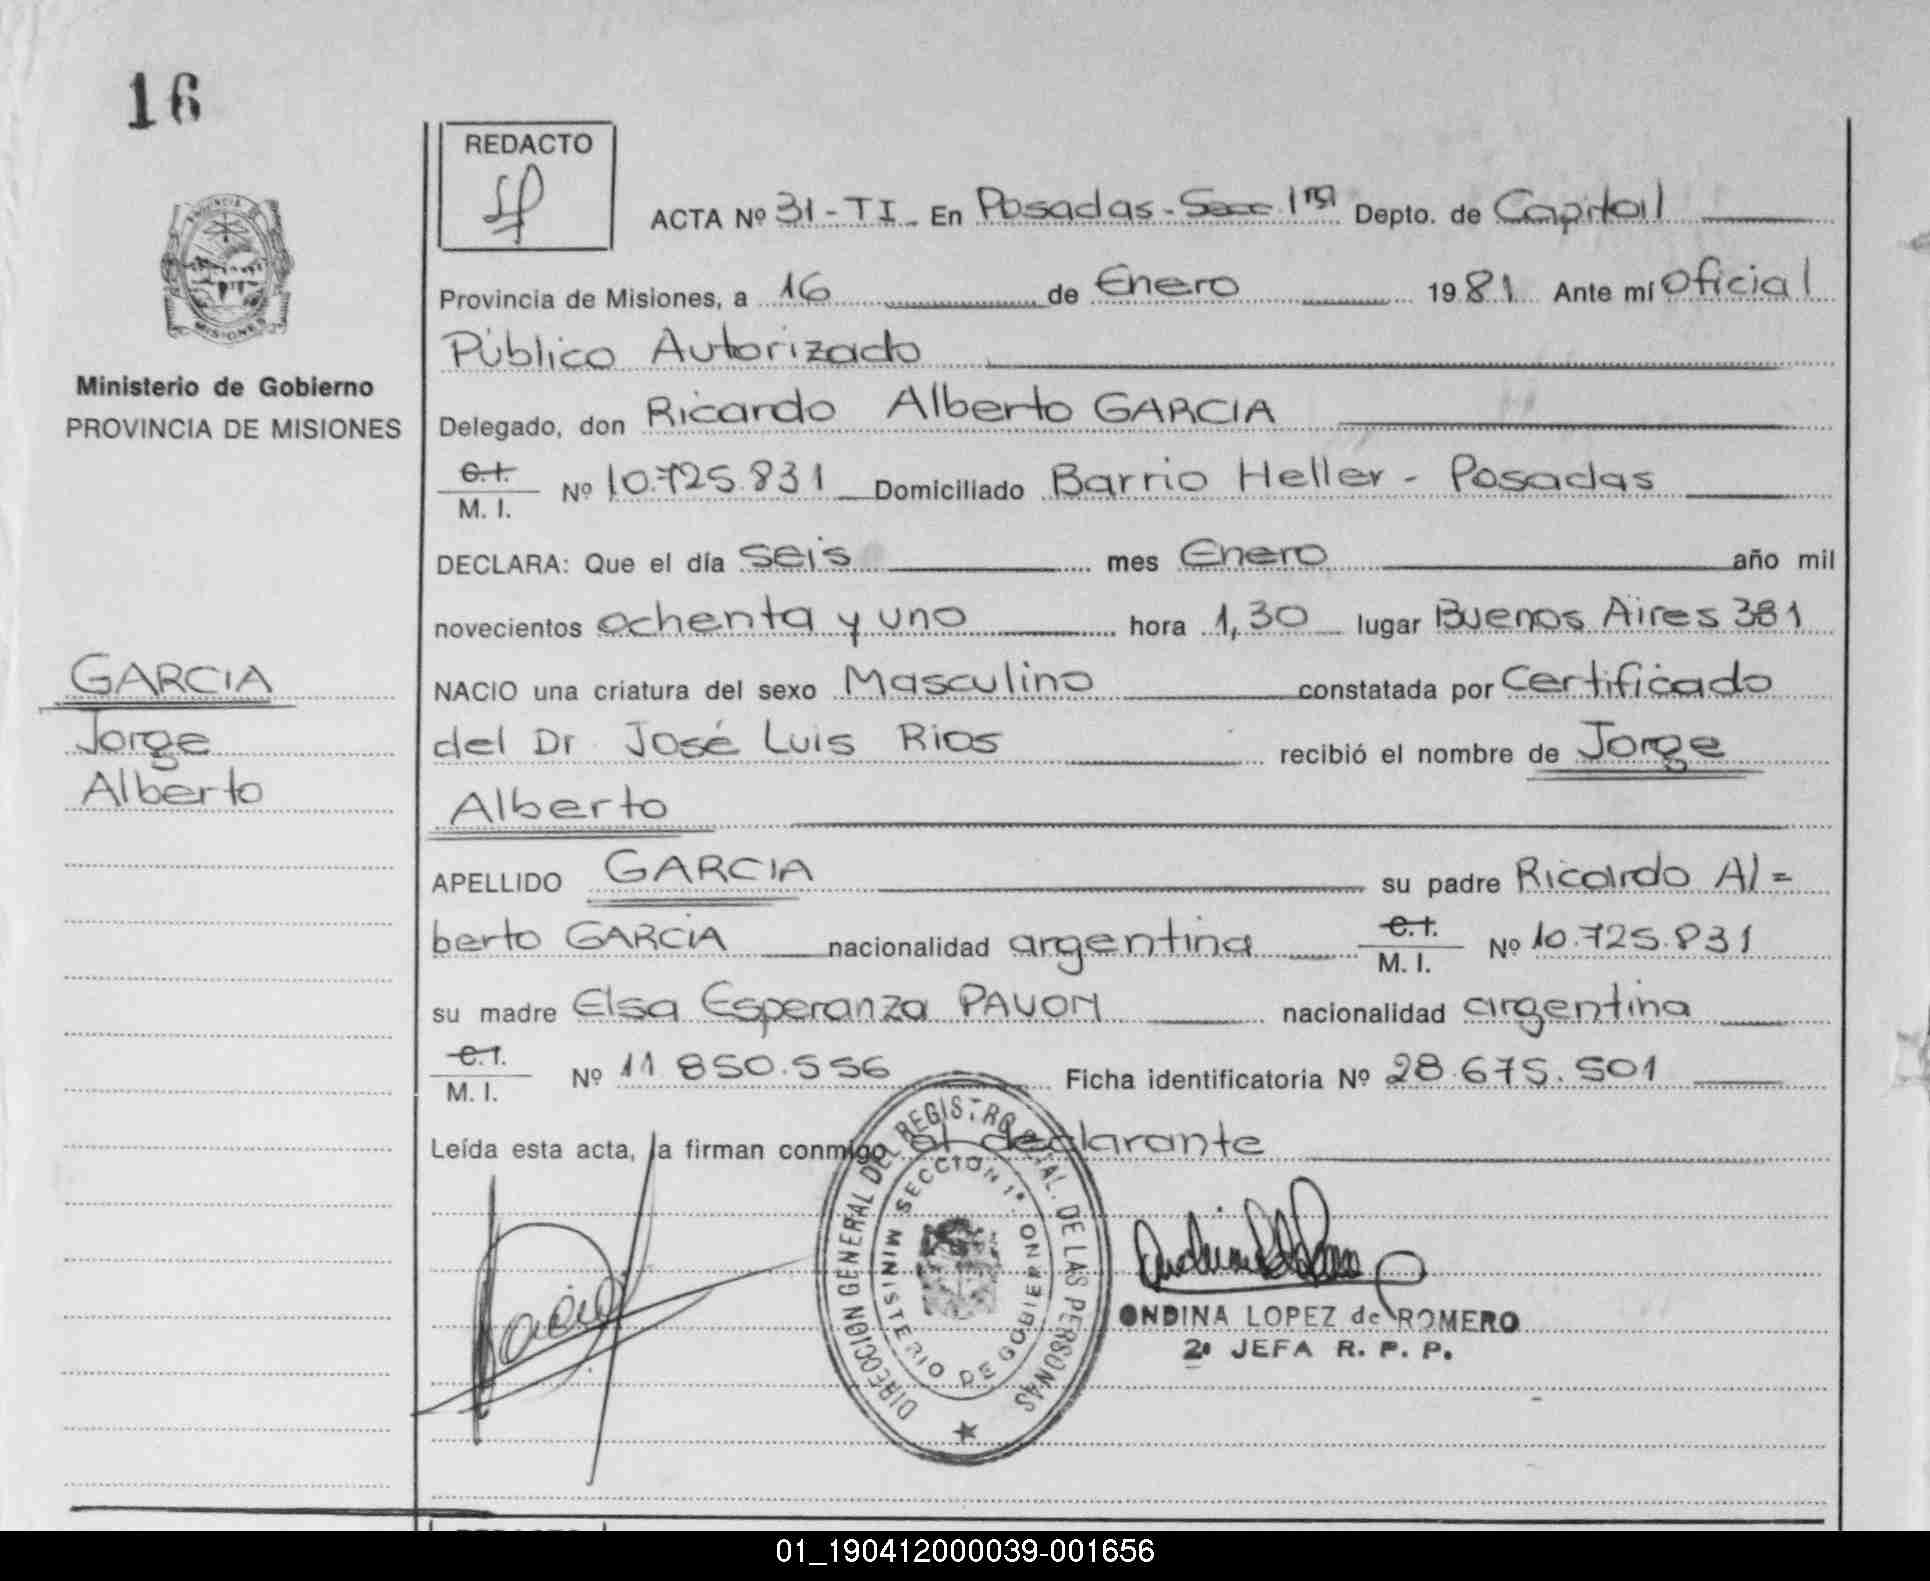 16
REDACTO
ACTA Nº 31-TI En Posadas-Secc 1ra Depto. de Capital
PROVINCIA DE
MISIONES
Provincia de Misiones, a 16 de Enero 1981 Ante mí Oficial
Público Autorizado
Ministerio de Gobierno
PROVINCIA DE MISIONES
Delegado, don Ricardo Alberto GARCIA
C.I.
M. I. Nº 10.725.831 Domiciliado Barrio Heller - Posadas
DECLARA: Que el día seis mes Enero año mil
novecientos ochenta y uno hora 1,30 lugar Buenos Aires 381
GARCIA
Jorge
Alberto
NACIO una criatura del sexo Masculino constatada por Certificado
del Dr. José Luis Rios recibió el nombre de Jorge
Alberto
APELLIDO GARCIA su padre Ricardo Al=
berto GARCIA nacionalidad argentina C.I.
M. I. Nº 10.725.831
su madre Elsa Esperanza PAVON nacionalidad argentina
C.I.
M. I. Nº 11.850.556 Ficha identificatoria Nº 28.675.501
Leída esta acta, la firman conmigo el declarante
DIRECCION GENERAL DEL REGISTRO PCIAL. DE LAS PERSONAS
SECCION 1ª
MINISTERIO DE GOBIERNO
ONDINA LOPEZ de ROMERO
2ª JEFA R. P. P.
REDACTO
01_190412000039-001656